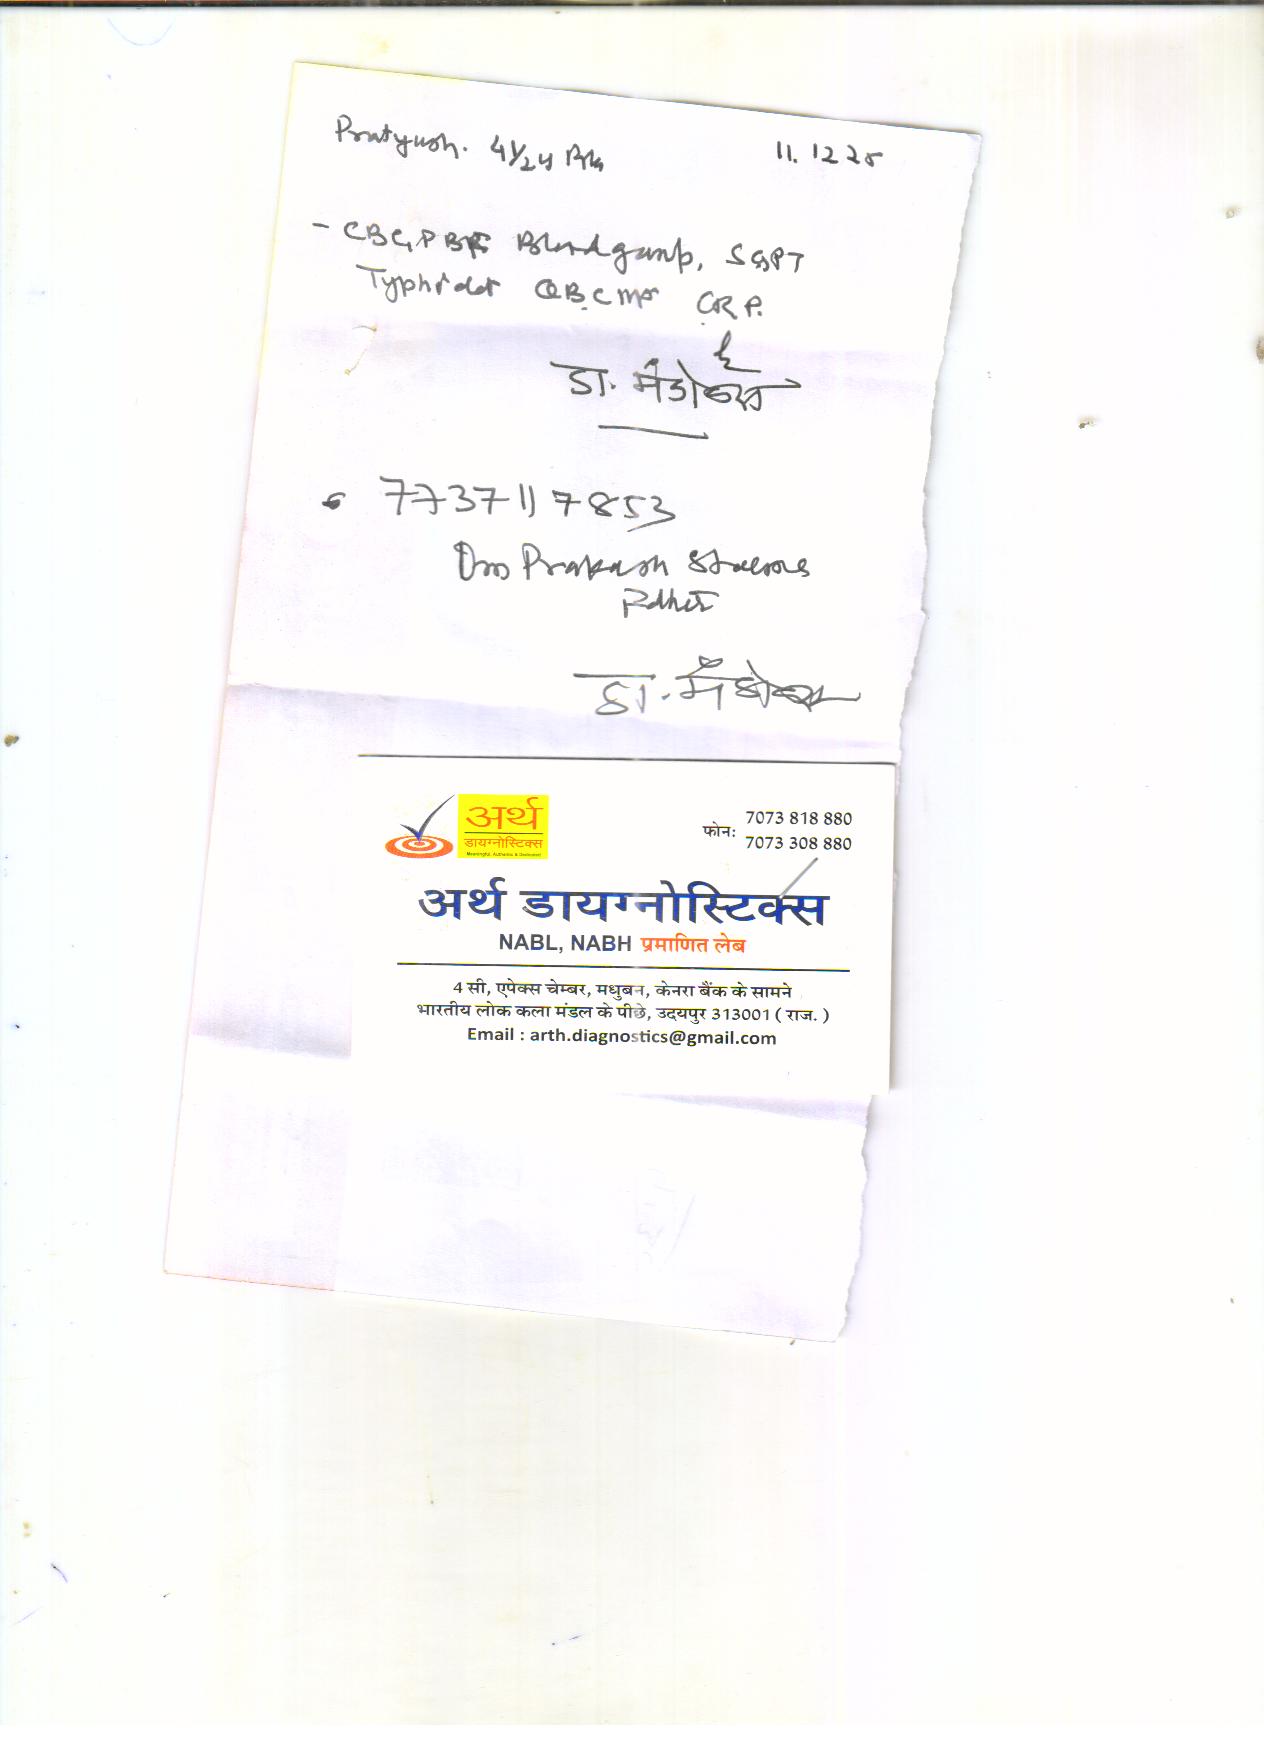 Pratyush. 4 1/2 y 11.12 25
- CBC, PBF Bloodgroup, SGPT
Typhidot QBC MP CRP.
डा.
7737117853
Om Prakash
डा.
अर्थ
डायग्नोस्टिक्स
Meaningful, Authentic & Dedicated
फोन: 7073 818 880
7073 308 880
अर्थ डायग्नोस्टिक्स
NABL, NABH प्रमाणित लेब
4 सी, एपेक्स चेम्बर, मधुबन, केनरा बैंक के सामने
भारतीय लोक कला मंडल के पीछे, उदयपुर 313001 ( राज. )
Email : arth.diagnostics@gmail.com